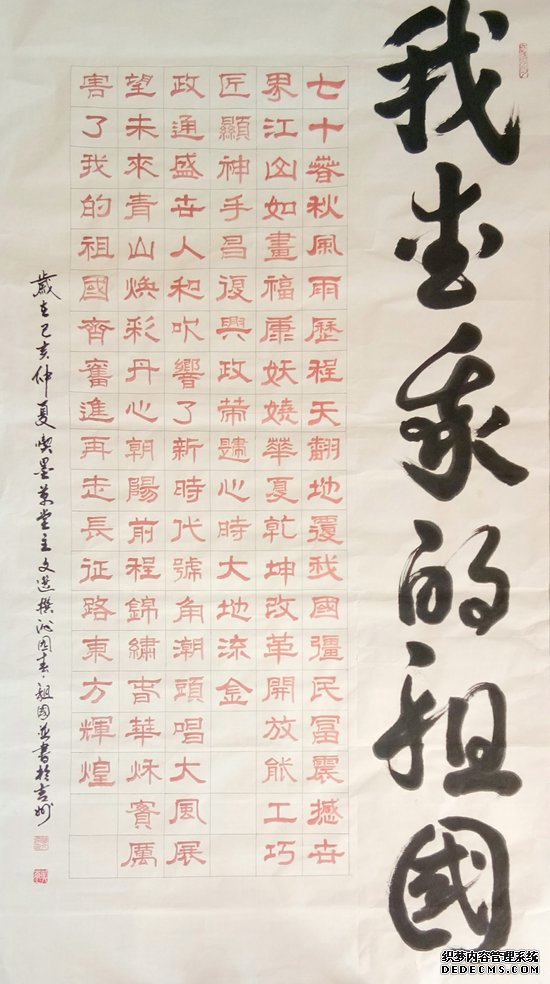 我爱我的祖國
七十春秋風雨歷程天翻地覆我國彊民富震撼世
界江山如畫福康妖嬈華夏乾坤改革開放能工巧
匠顯神手昌復興政策韙心時大地流金
政通盛世人和吹響了新時代號角潮頭唱大風展
望未來青山煥彩丹心朝陽前程錦繡春華秋實厲
害了我的祖國齊奮進再走長征路東方輝煌
歲在己亥仲夏喫墨草堂主文選撰沁园春·祖国並書於吉州
织梦内容管理系统
DEDECMS.COM